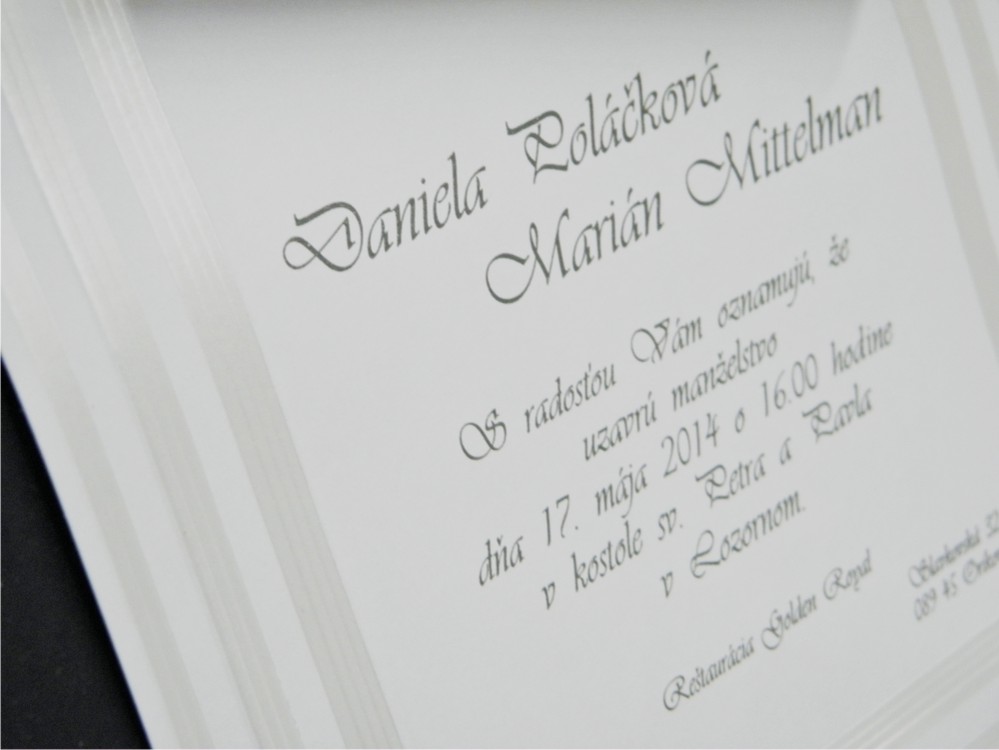 Daniela Poláčková
Marián Mittelman
S radosťou Vám oznamujú, že
uzavrú manželstvo
dňa 17. mája 2014 o 16.00 hodine
v kostole sv. Petra a Pavla
v Lozornom.
Reštaurácia Golden Royal
089 45